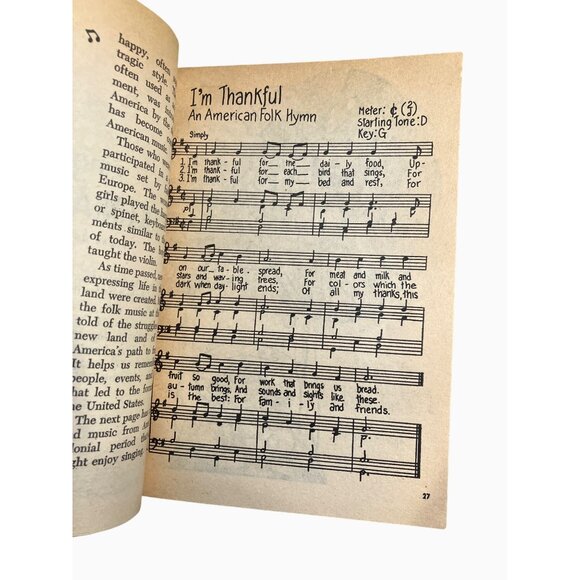 happy, often
tragic style.
often used as
ment, was
America by the
has become
American music.
Those who
participated in
music set by
Europe. The
girls played the
or spinet, keyboard
ments similar to
of today. The
taught the violin.
As time passed,
expressing life in
land were created.
the folk music
told of the struggle
new land and of
America's path to
It helps us
people, events, and
that led to the
the United States.
The next page
and music from
lonial period
ght enjoy singing.
I'm Thankful
An American Folk Hymn
Meter: ¢ (2/2)
Starting Tone: D
Key: G
Simply
1. I'm thank - ful for__ the__ dai - ly food, Up-
2. I'm thank - ful for__ each__ bird that sings, For
3. I'm thank - ful for__ my__ bed and rest, For
on our__ ta - ble__ spread, For meat and milk and
stars and wav - ing trees, For col - ors which the
dark when day - light ends; Of all my thanks, this
fruit so good, For work that brings us bread.
au - tumn brings, And sounds and sights like these.
is the best: For fam - i - ly and friends.
27